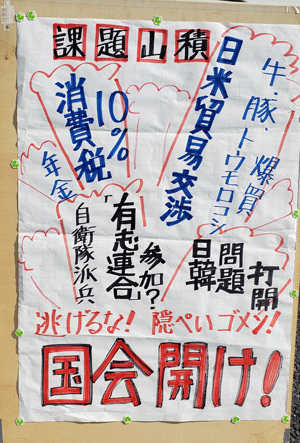 課題山積
牛、豚、トウモロコシ
爆買
日米貿易交渉
10%
消費税
年金
打開
日韓
問題
参加?
「有志連合」
自衛隊派兵
逃げるな! 隠ぺいゴメン!
国会開け!